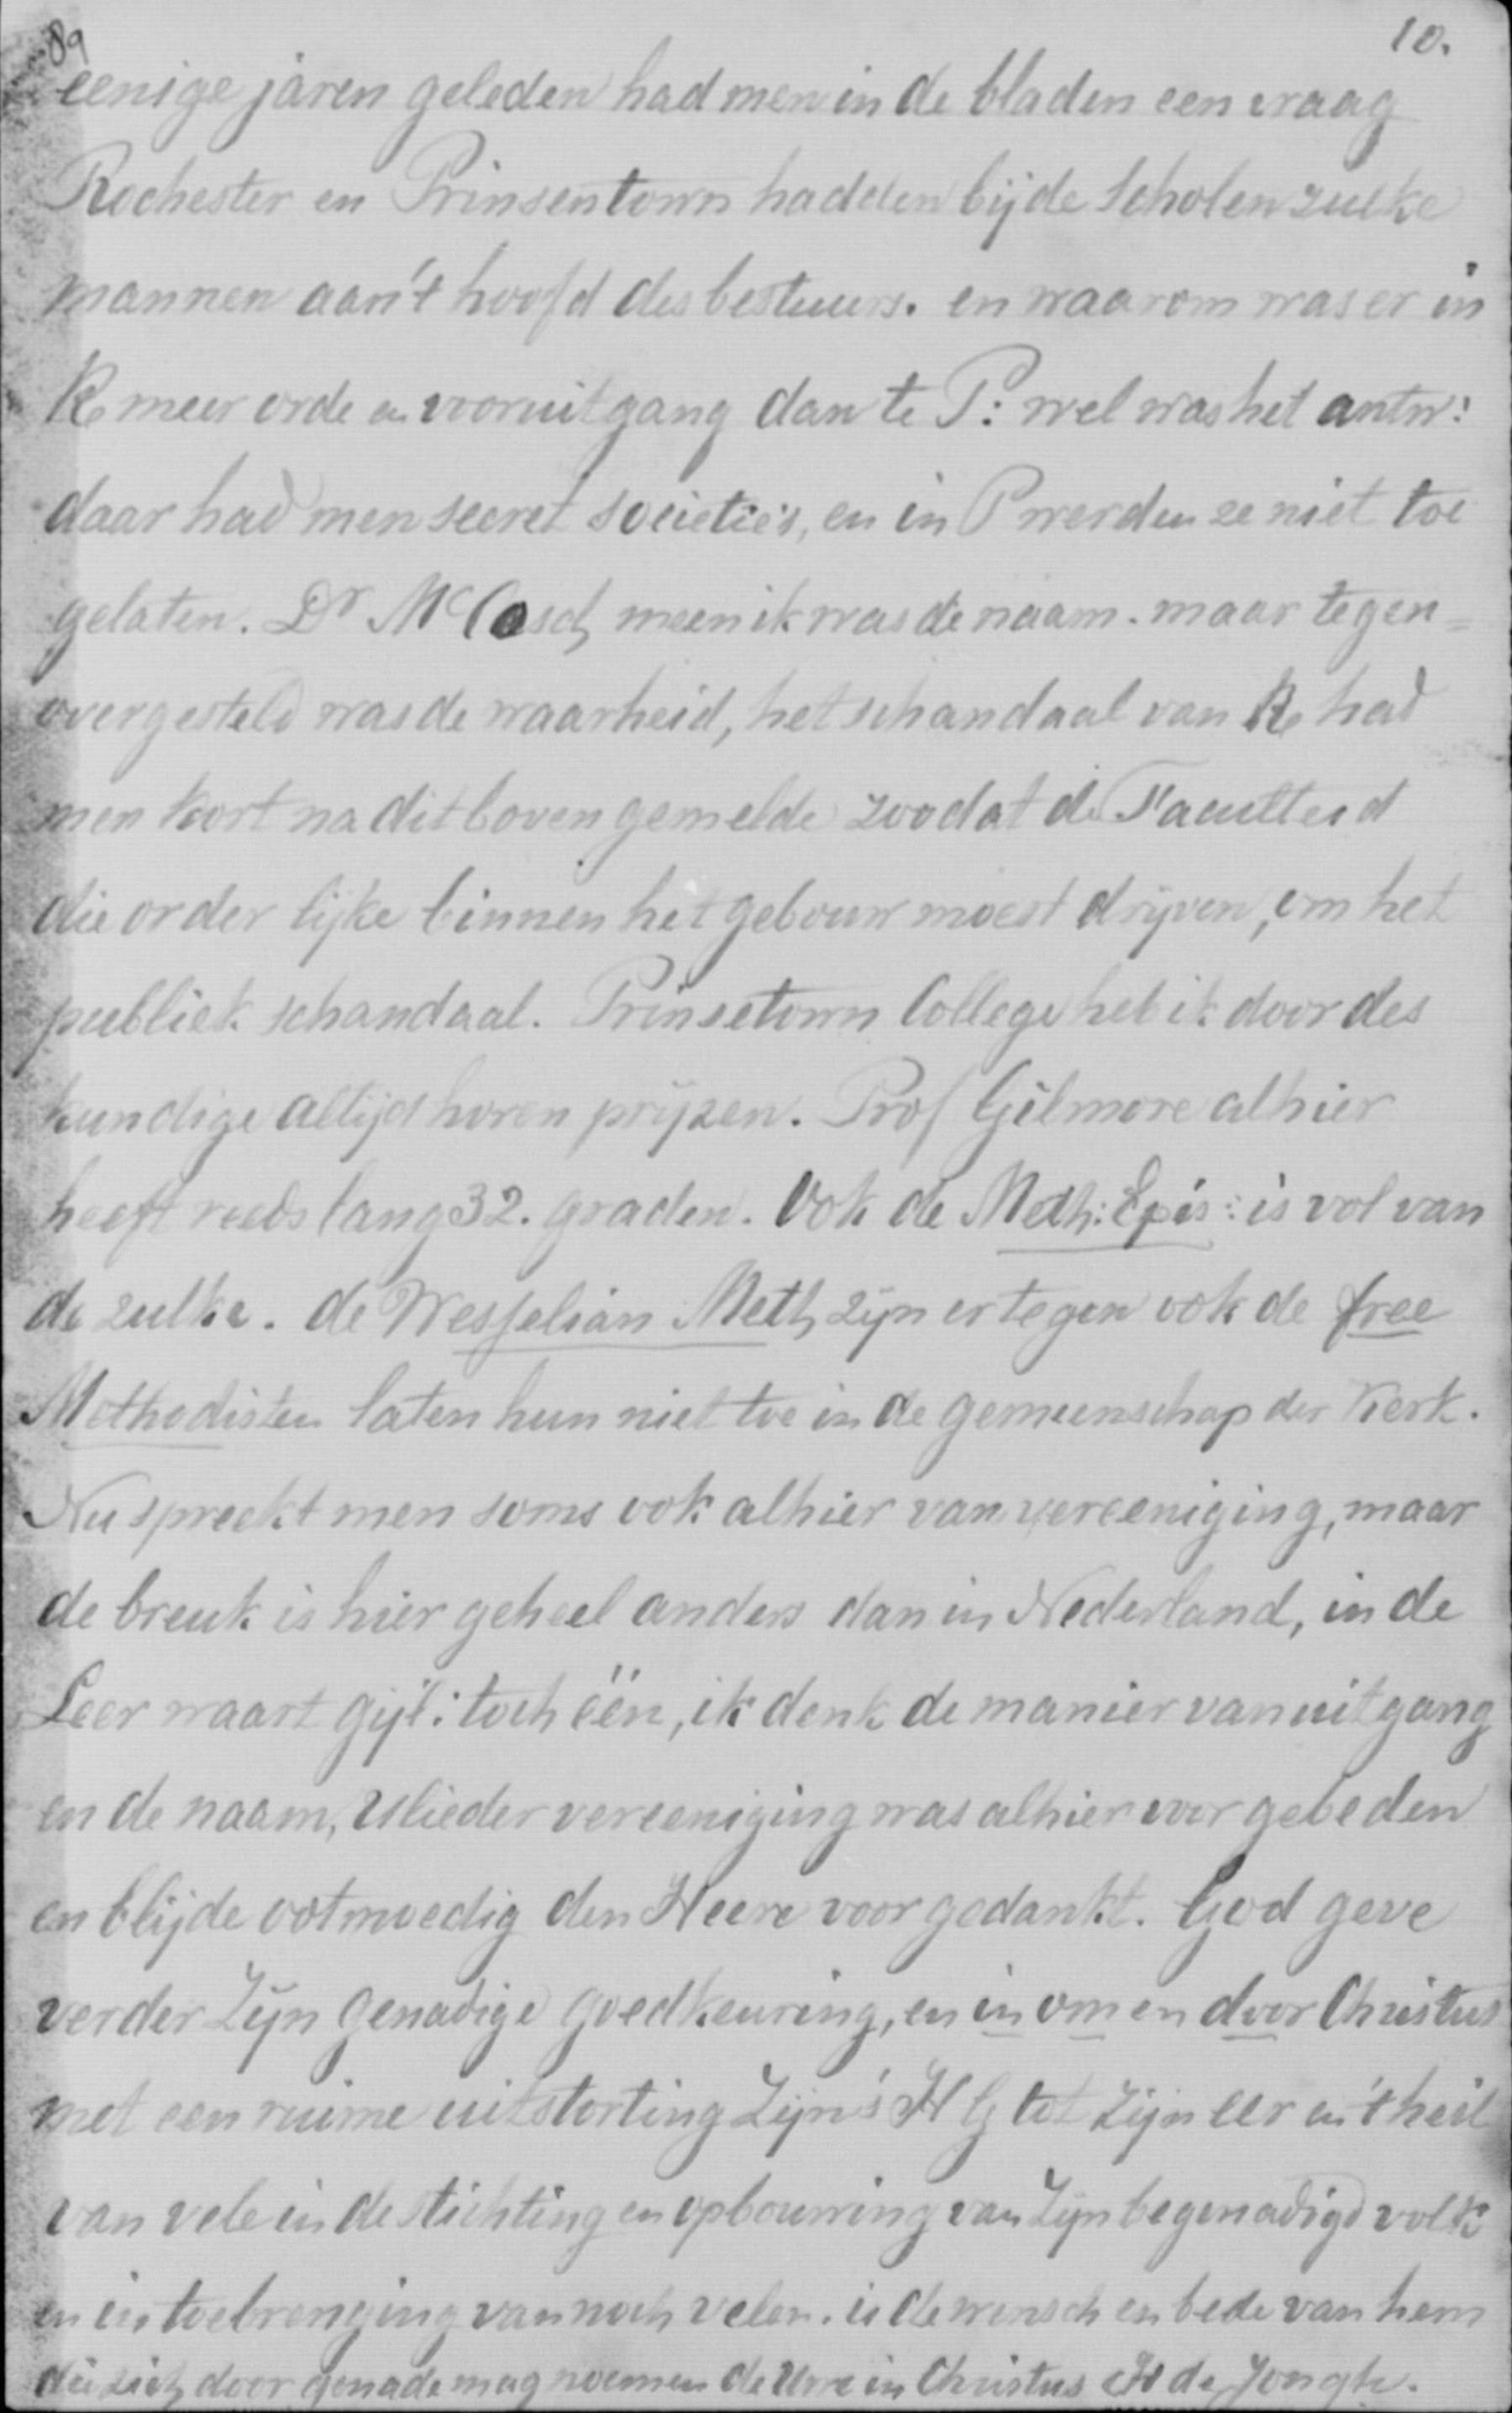 89
10.
eenige jaren geleden had men in de bladen een vraag
Rochester en Prinsentown hadden bijde Scholen zulke
mannen aan't hoofd des bestuurs. en waarom was er in
R. meer orde en vooruitgang dan te P: wel was het antw:
daar had men secret societie's, en in P werden ze niet toe
gelaten. Dr McCosch meen ik was de naam. maar tegen=
overgesteld was de waarheid, het schandaal van R. had
men kort na dit boven gemelde zoodat de Faculteid
die order lijke binnen het gebouw moest drijven, om het
publiek schandaal. Prinsetown College heb ik door des
kundige altijd horen prijzen. Prof Gilmore alhier
heeft reeds lang 32. graden. Ook de Meth: Epis: is vol van
de zulke. de Wesselian Meth zijn er tegen ook de free
Methodisten laten hun niet toe in de gemeenschap der Kerk.
Nu spreekt men soms ook alhier van vereeniging, maar
de breuk is hier geheel anders dan in Nederland, in de
Leer waart gijl: toch één, ik denk de manier van uitgang
en de naam, Ulieder vereeniging was alhier voor gebeden
en blijde ootmoedig den Heere voor gedankt. God geve
verder Zijn genadige goedkeuring, en in om en door Christus
met een ruime uitstorting Zijn's H G tot Zijn eer en 't heil
van vele in de stichting en opbouwing van Zijn begenadigd volk
en in toebrenging van noch velen. is de wensch en bede van hem
die zich door genade mag noemen de Uwe in Christus H de Jongh.